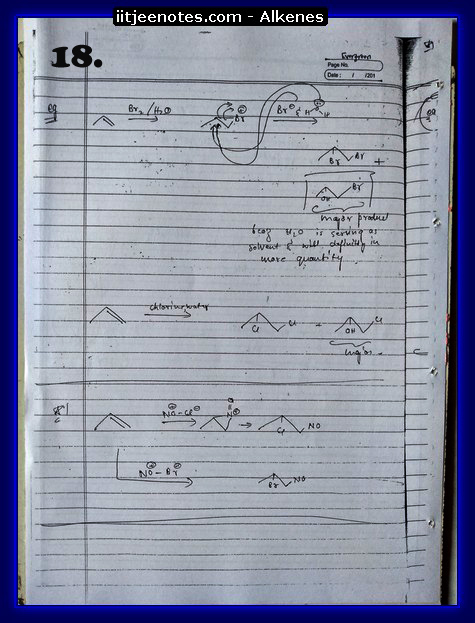 iitjeenotes.com - Alkenes
18.
Page No.
Date : / /201
Br₂/H₂O
Br⊕
Br⊖ & H O H
Br
Br +
OH Br
major product
bcoz H₂O is serving as
solvent & will definitly in
more quantity
chlorine water
Cl Cl
OH Cl
major
NO⊕-Cl⊖
O
N⊕
Cl NO
NO⊕-Br⊖
Br NO